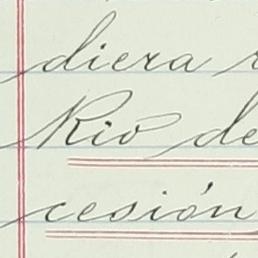 diera
Rio de
cesión